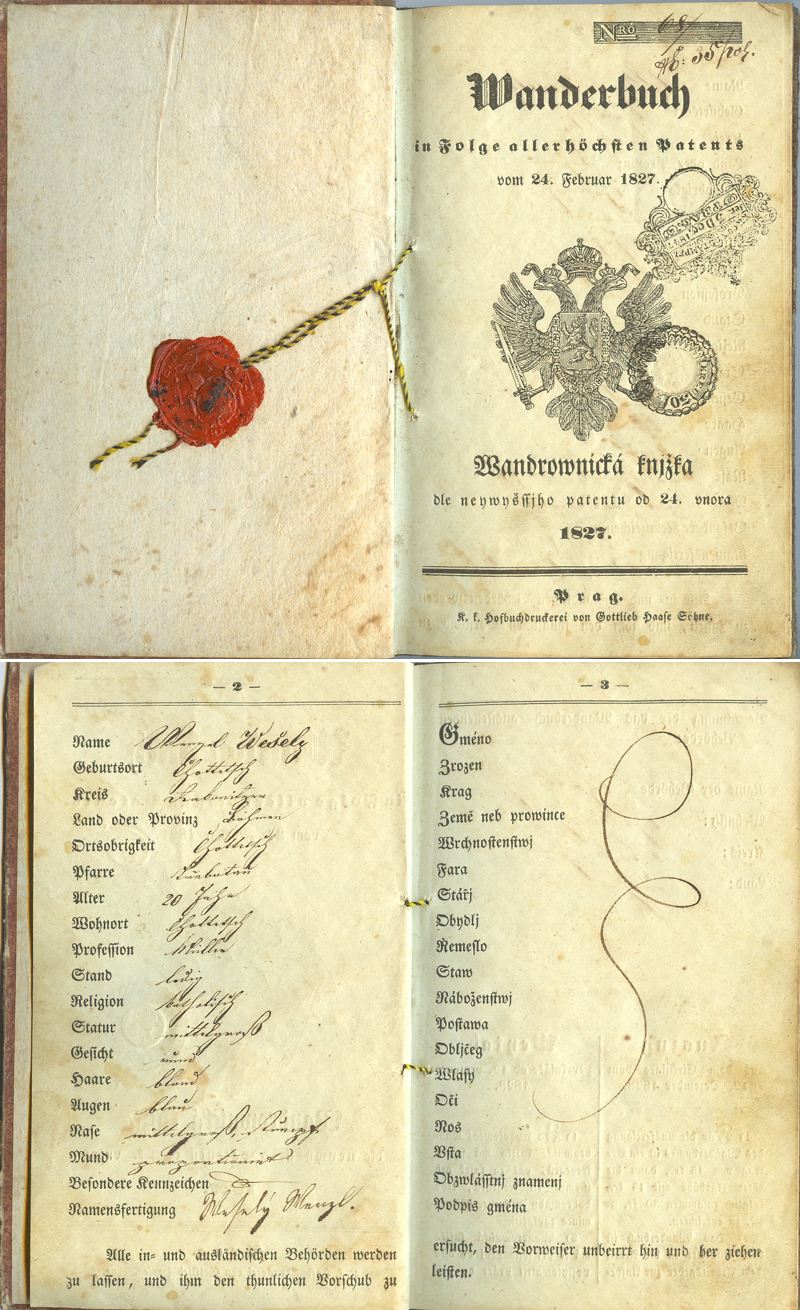 Nro 68/
35/
Wanderbuch
in Folge allerhöchsten Patents
vom 24. Februar 1827.
Wandrownická knjžka
dle neywyšssjho patentu od 24. vnora
1827.
Prag.
K. k. Hofbuchdruckerei von Gottlieb Haase Söhne.
— 2 —
Name Wenzel Wesely
Geburtsort Chottetsch
Kreis
Land oder Provinz Böhmen
Ortsobrigkeit Chottetsch
Pfarre
Alter 20 Jahr
Wohnort Chottetsch
Profession Müller
Stand ledig
Religion katholisch
Statur mittelgroß
Gesicht rund
Haare blond
Augen blau
Nase mittelgroß, stumpf
Mund proportionirt
Besondere Kennzeichen
Namensfertigung Weselý Wenzl.
Alle in- und ausländischen Behörden werden
zu lassen, und ihm den thunlichen Vorschub zu
— 3 —
Gméno
Zrozen
Krag
Země neb prowince
Wrchnostenstwj
Fara
Stářj
Obydlj
Řemeslo
Staw
Náboženstwj
Postawa
Obljčeg
Wlasy
Oči
Nos
Vsta
Obzwlásstnj znamenj
Podpis gména
ersucht, den Vorweiser unbeirrt hin und her ziehen
leisten.